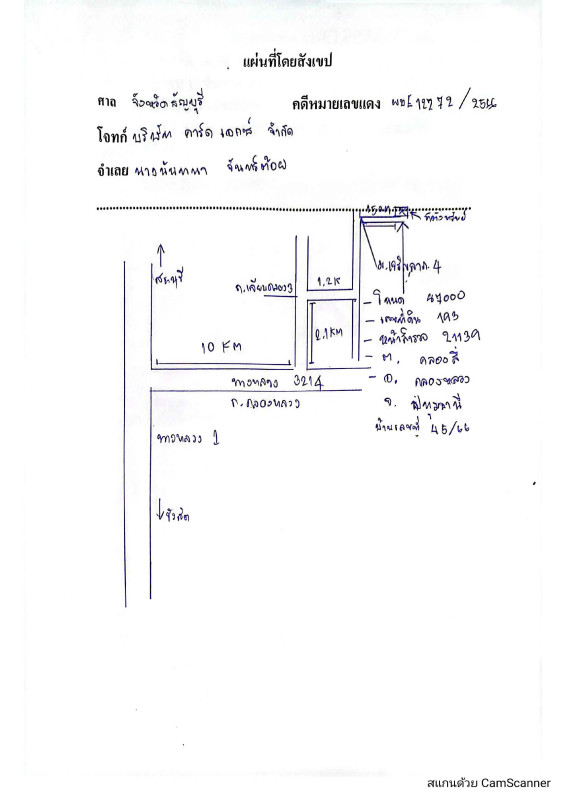 แผนที่โดยสังเขป
ศาล จังหวัดธัญบุรี คดีหมายเลขแดง ผบE12772/25
โจทก์ บริษัท คาร์ด เอกซ์ จำกัด
จำเลย นางนันทนา จันทร์ต้อม
ที่ตั้งทรัพย์
สระบุรี
ถ.เลียบคลอง3
1.2K
ม.เจริญลาภ 4
- โฉนด 47000
- เลขที่ดิน 193
- หน้าสำรวจ 21139
- ต. คลองสี่
- อ. คลองหลวง
จ. ปทุมธานี
บ้านเลขที่ 45/66
2.1KM
10 KM
ทางหลวง 3214
ถ.คลองหลวง
ทางหลวง 1
รังสิต
สแกนด้วย CamScanner